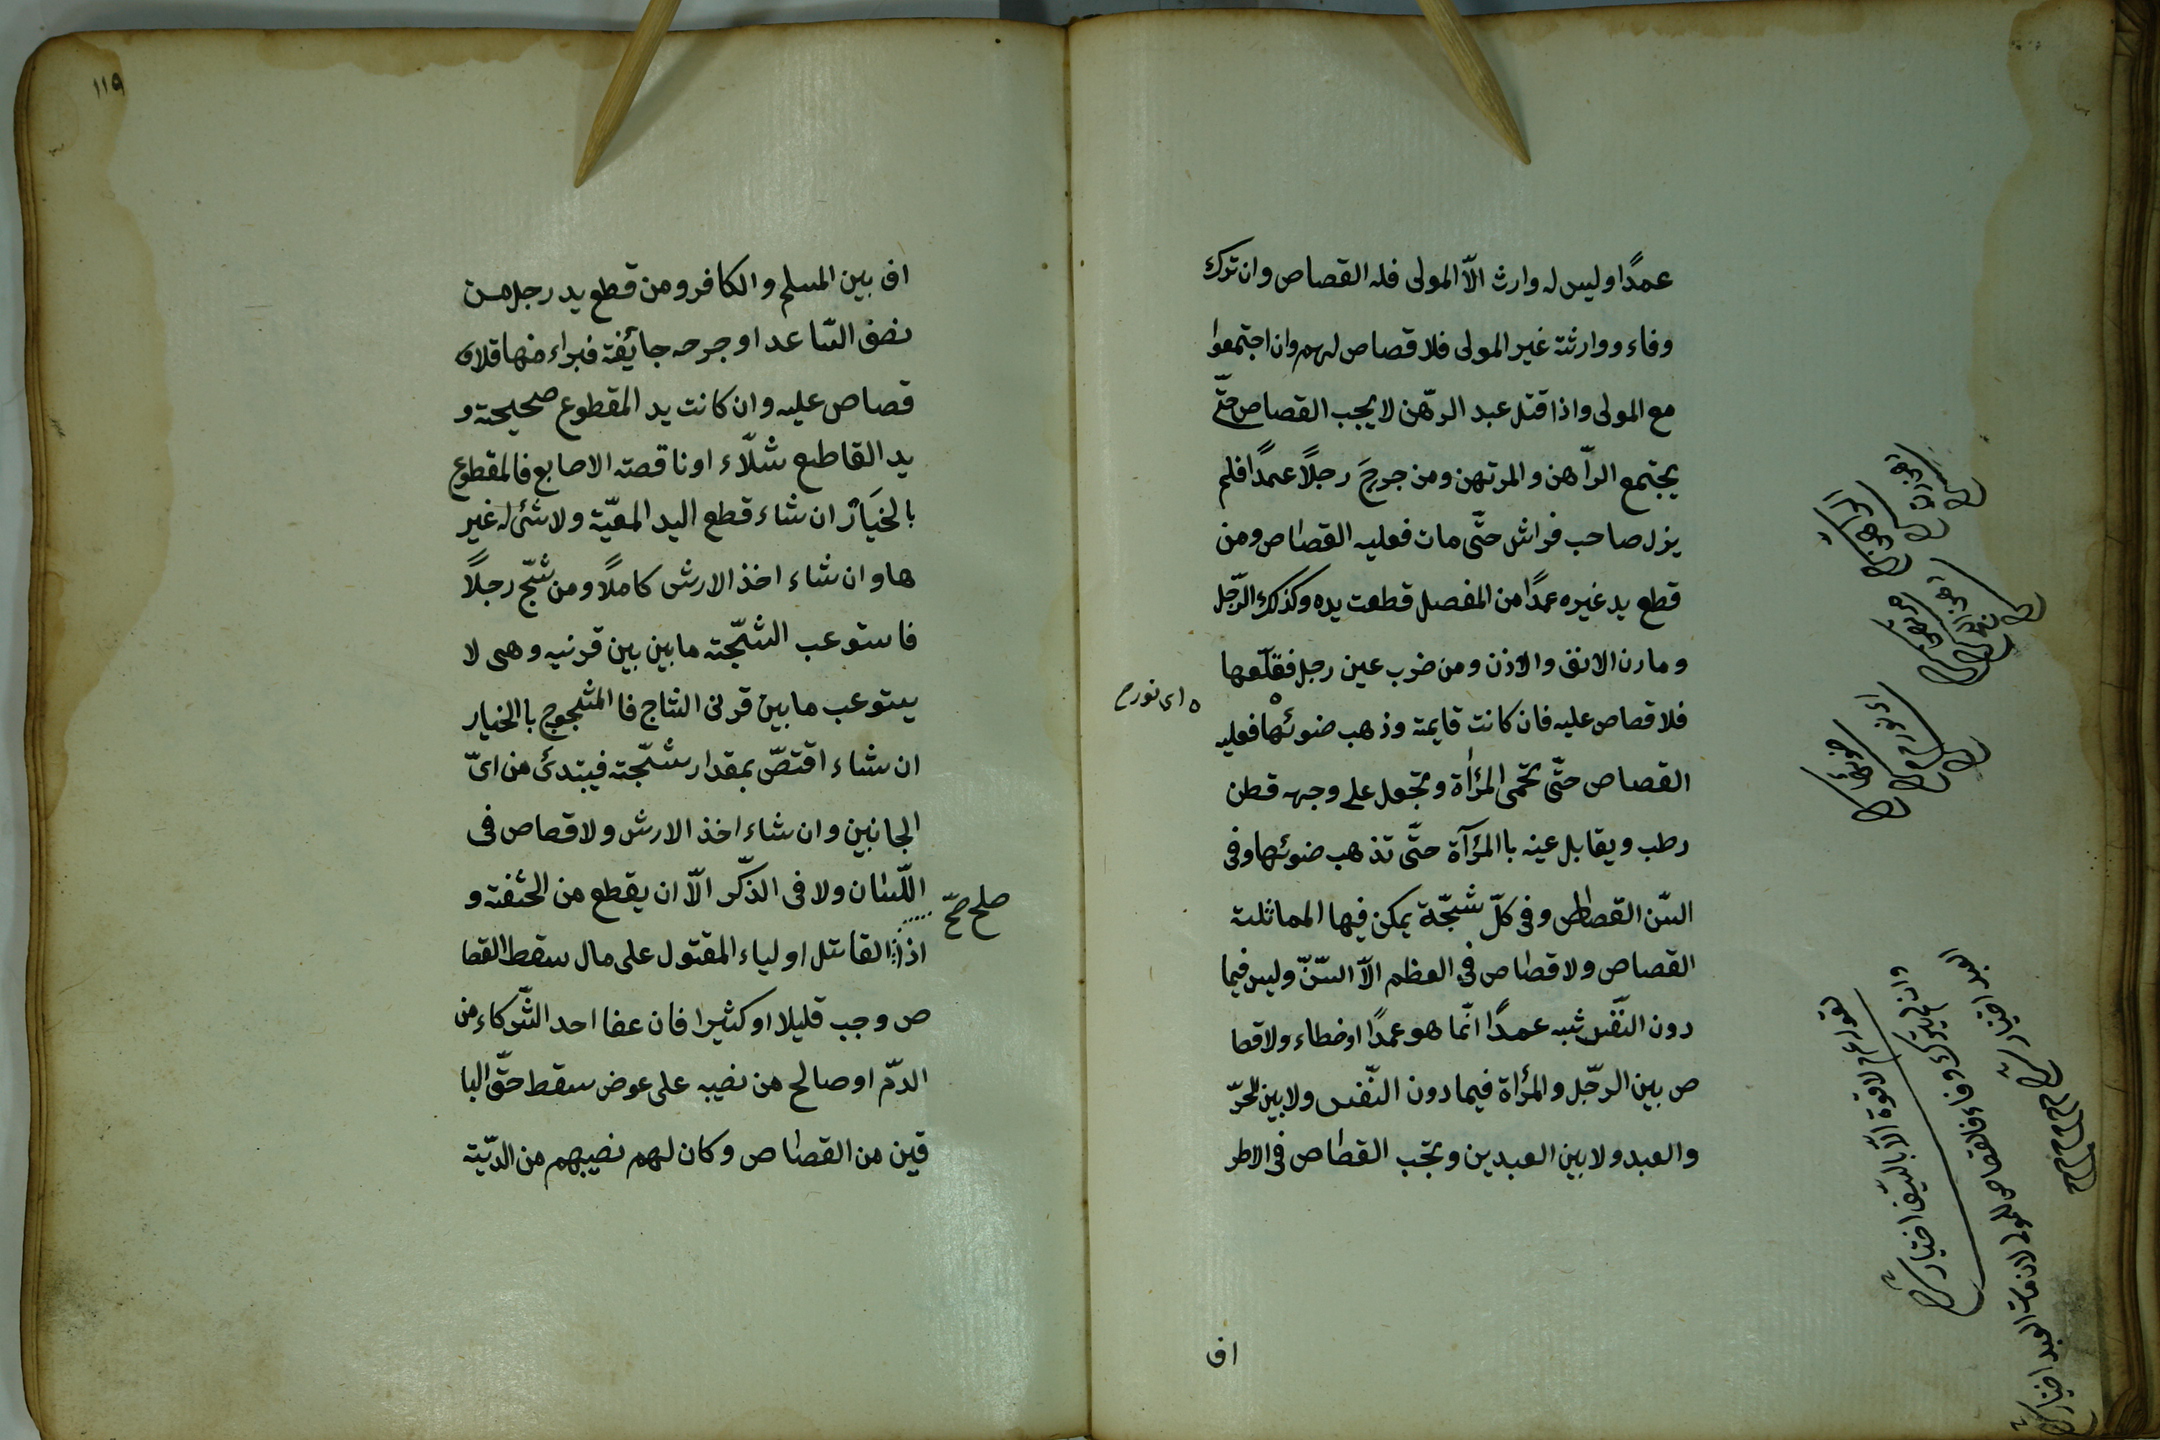 عمدًا وليس له وارث الّا المولى فله القصاص وان ترك
وفاء ووارثته غير المولى فلا قصاص لهم وان اجتمعوا
مع المولى واذا قتل عبد الرّهن لا يجب القصاص حتّى
يجتمع الرّاهن والمرتهن ومن جرحَ رجلًا عمدًا فلم
يزل صاحب فراش حتّى مات فعليه القصاص ومن
قطع يد غيره عمدًا من المفصل قطعت يده وكذلك الرّجل
ومارن الانف والاذن ومن ضرب عين رجل فقلّعها
فلا قصاص عليه فان كانت قايمة وذهب ضوئها فعليه
القصاص حتّى تحمى المرأة وتجعل على وجهه قطن
رطب ويقابل عينه باالمرآة حتّى تذهب ضوئها وفى
السّن القصاص وفى كلّ شجّة يمكن فيها المماثلة
القصاص ولا قصاص فى العظم الّا السّنّ وليس فيما
دون النّفس شبه عمدًا انّما هو عمدًا اوخطاء ولا قصا
ص بين الرجّل والمرأة فيما دون النّفس ولا بين الحرّ
والعبد ولا بين العبدين ويجب القصاص فى الاطر
اف
ای نورم
١١٩
اف بين المسلم والكافر ومن قطع يد رجل من
نصف السّاعد او جرحه جائفة فبراء منها فلا
قصاص عليه وان كانت يد المقطوع صحيحة و
يد القاطع شلّاء او ناقصة الاصابع فالمقطوع
بالخيَار ان شاء قطع اليد المعيّة ولا شئ له غير
ها وان شاء اخذ الارش كاملًا ومن شجّ رجلًا
فاستوعب الشجّة ما بين بين قرنيه وهى لا
يستوعب ما بين قرنى الشاج فا المشجوج باالخيار
ان شاء اقتصّ بمقدار شجّته فيبتدئ من اىّ
الجانبين وان شاء اخذ الارش ولا قصاص فى
اللّسان ولا فى الذكّر الّا ان يقطع من الحشفة و
صلح صحّ
اذا القاتل اولياء المقتول على مال سقط القصا
ص وجب قليلا او كثيرا فان عفا احد الشّركاء من
الدمّ او صالح من نصيبه على عوض سقط حقّ البا
قين من القصاص وكان لهم نصيبهم من الديّة